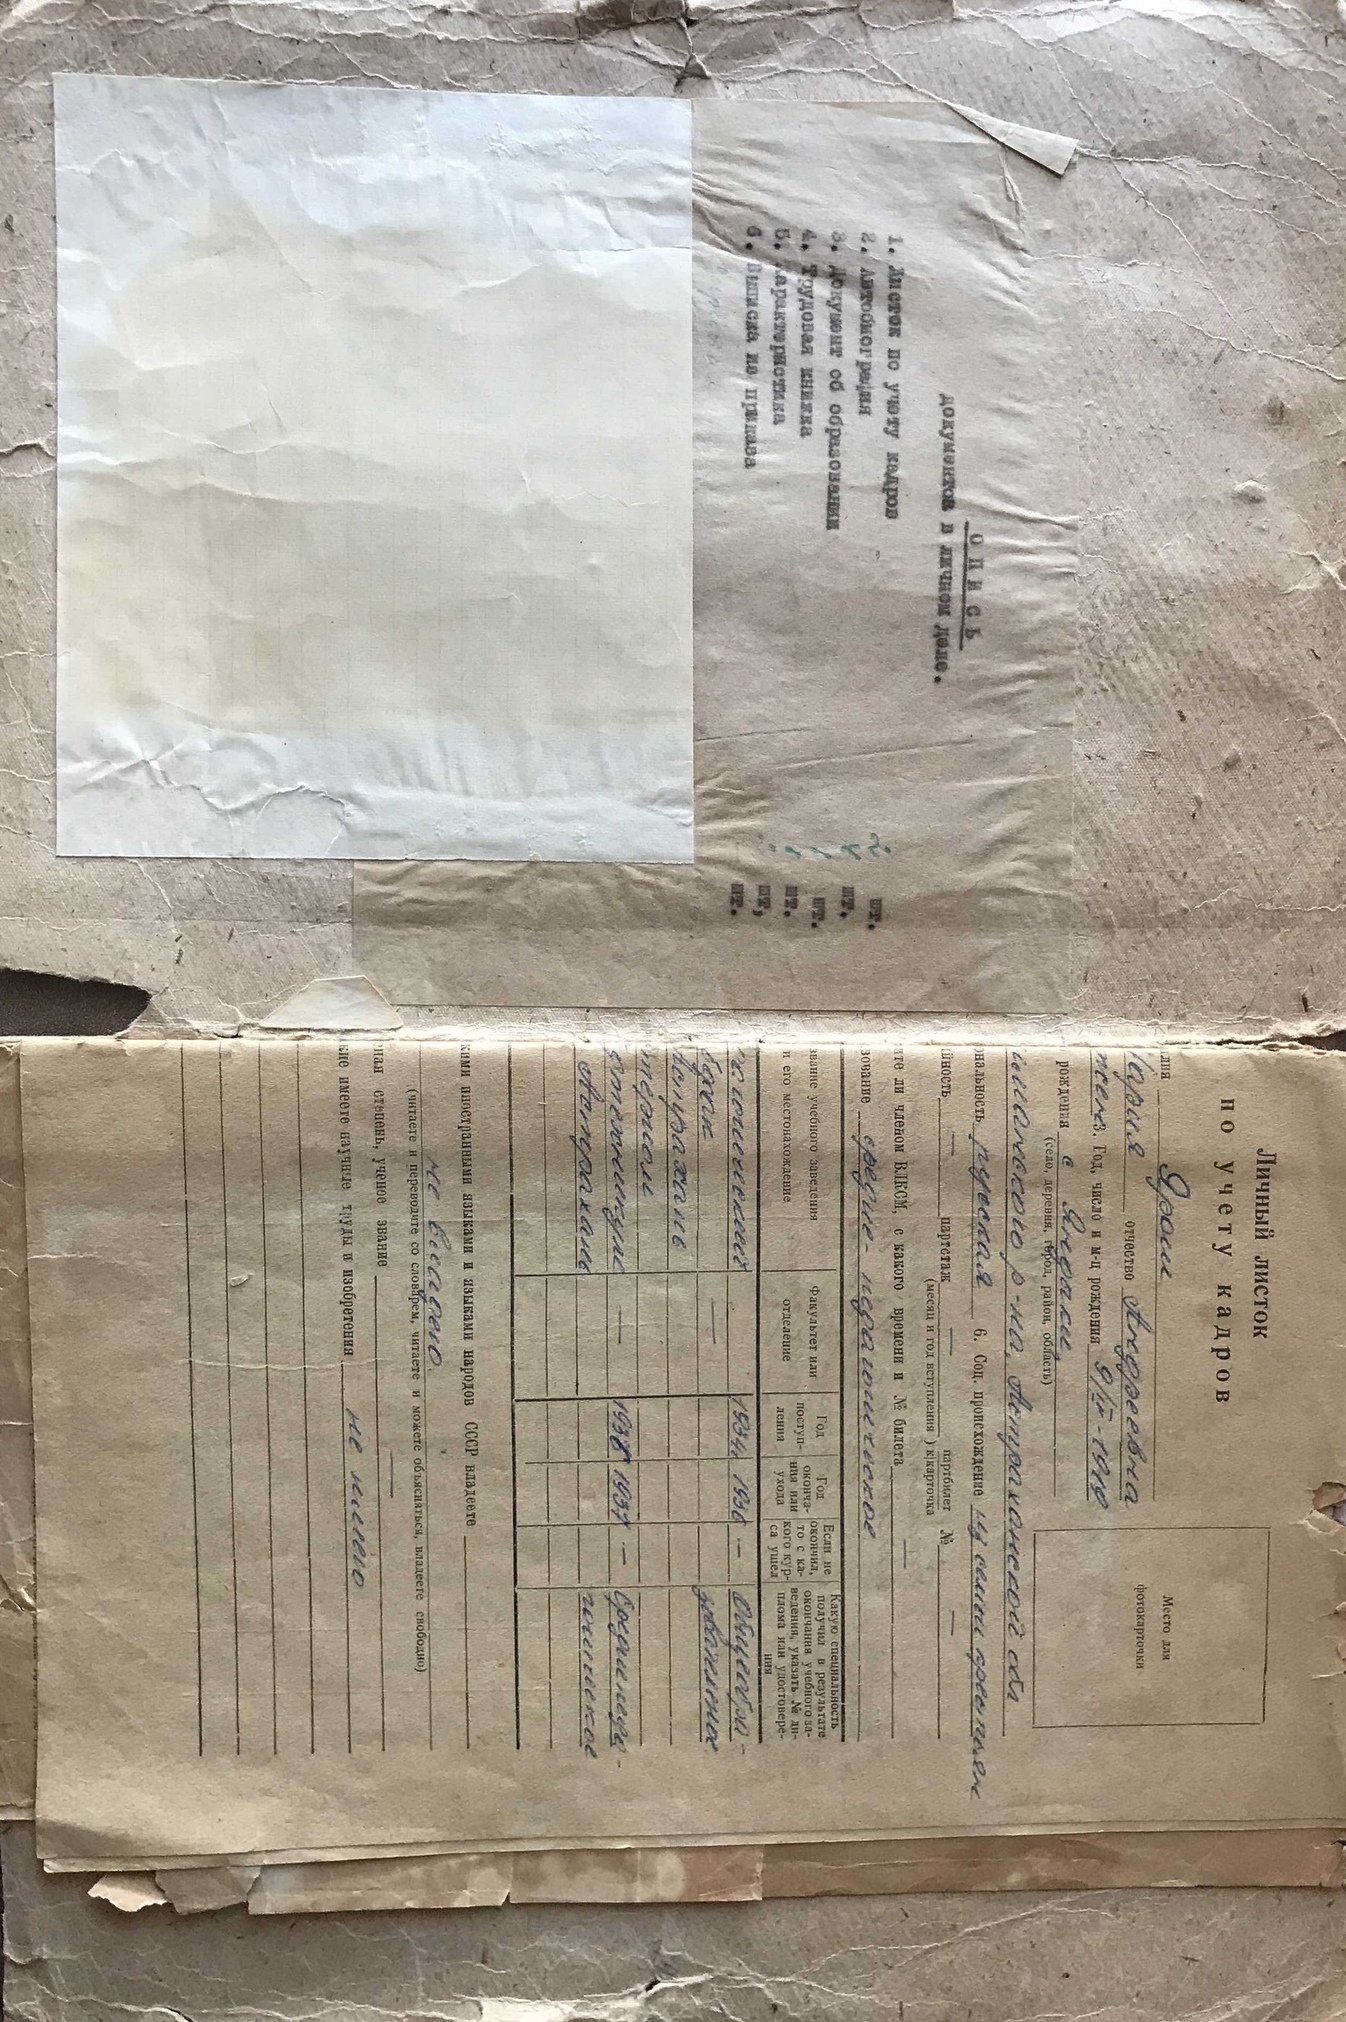 О П И С Ь
документов в личном деле.
1. Листок по учету кадров шт.
2. Автобиография шт.
3. Документ об образовании шт.
4. Трудовая книжка шт.
5. Характеристика шт,
6. Выписка из приказа шт.
Личный листок
по учету кадров
Место для
фотокарточки
Яром
Мария отчество Андреевна
3. Год, число и м-ц рождения 9/IV-1918
рождения с Яндыки
(село, деревня, город, район, область)
р-на, Астраханской обл
русская 6. Соц. происхождение из семьи крестьян
— партстаж — партбилет № —
(месяц и год вступления) к/карточка
ли членом ВЛКСМ, с какого времени и № билета —
средне-педагогическое
звание учебного заведения и его местонахождение
Факультет или отделение
Год поступления
Год окончания или ухода
Если не окончил, то с какого курса ушел
Какую специальность получил в результате окончания учебного заведения, указать № диплома или удостоверения
1934 1936 — Общеобра-
рабфак — зовательное
Астрахань
1938 — Средне педа-
Астрахань гогическое
иностранными языками и языками народов СССР владеете
не владею.
(читаете и переводите со словарем, читаете и можете объясняться, владеете свободно)
степень, ученое звание —
имеете научные труды и изобретения не имею